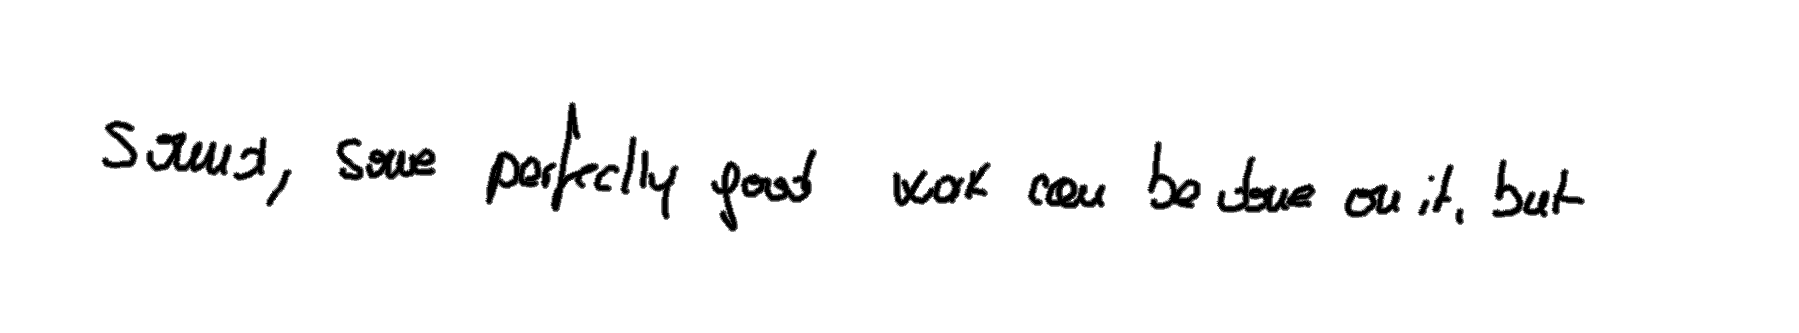 sound, some perfectly good work can be done on it, but